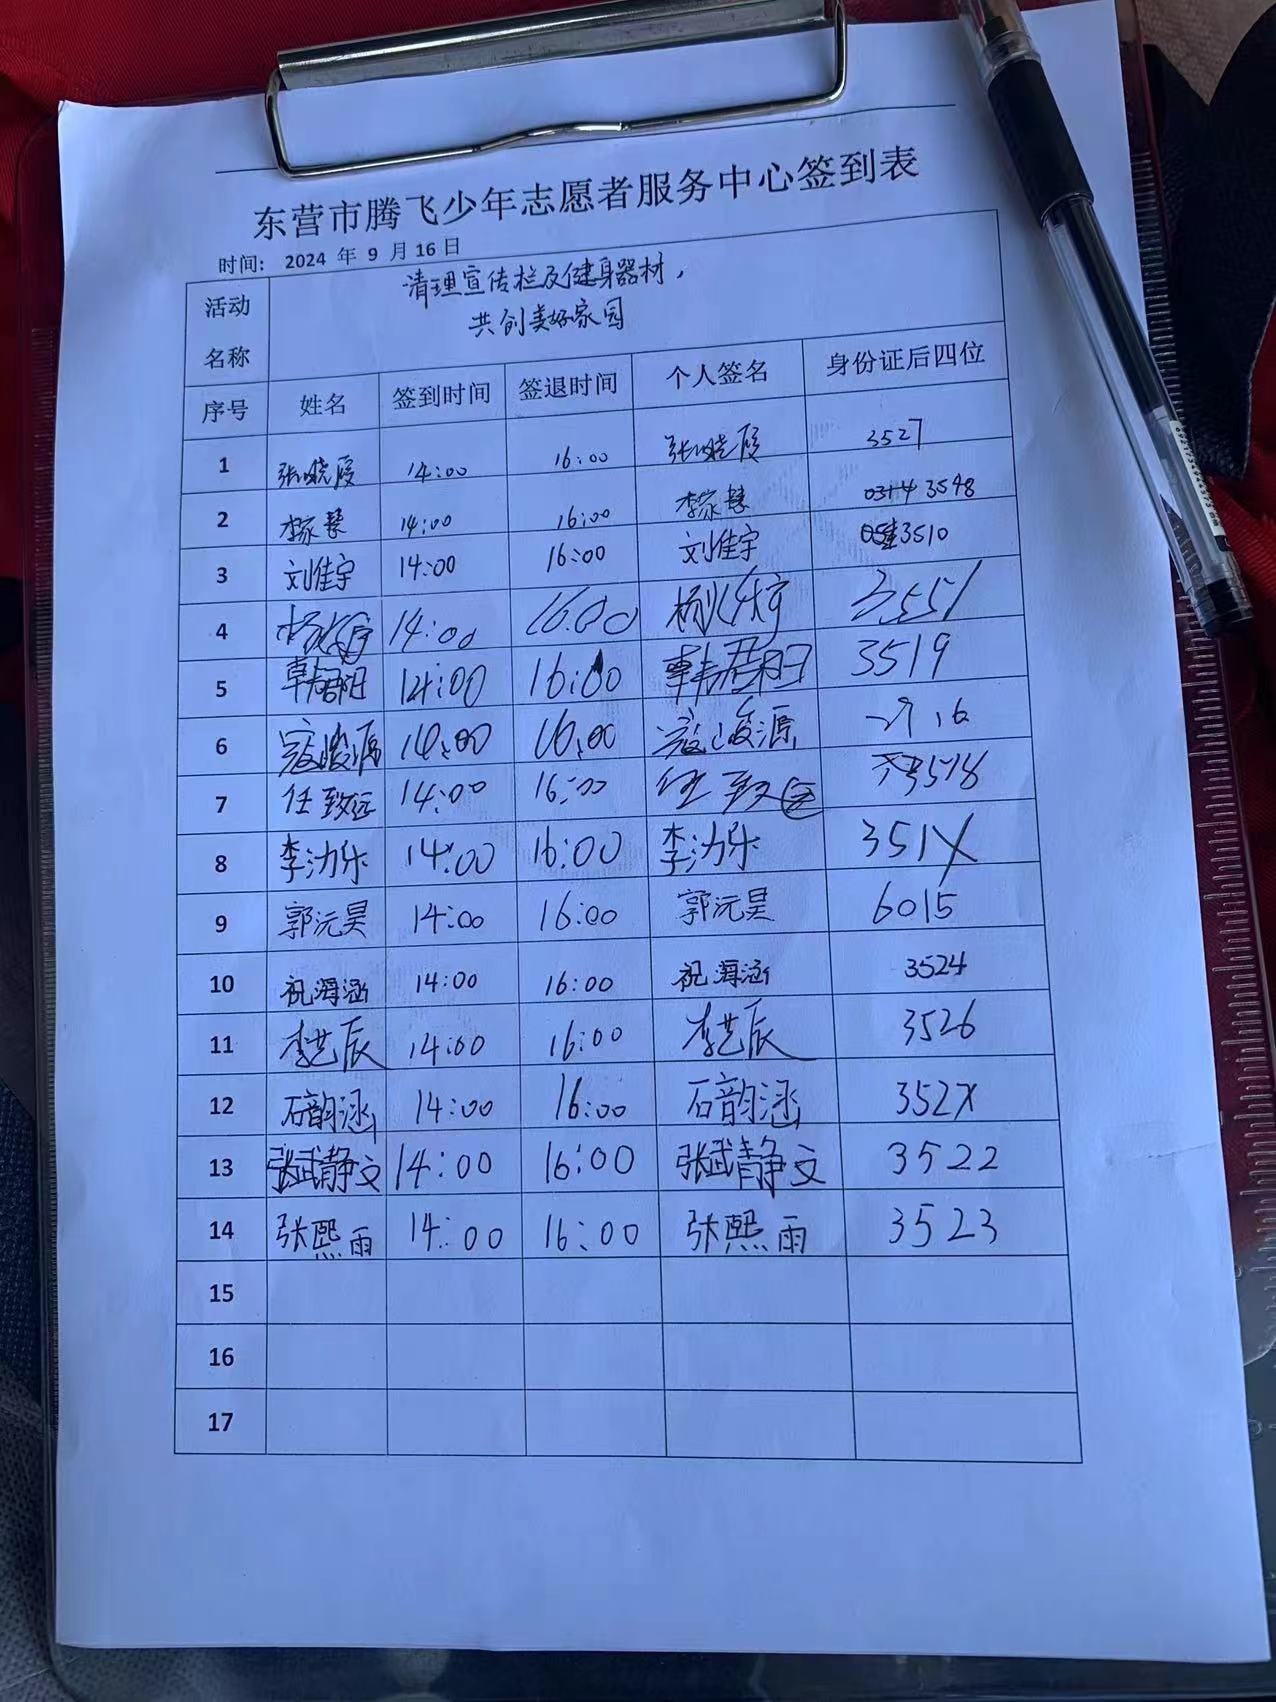 东营市腾飞少年志愿者服务中心签到表
时间: 2024 年 9 月 16 日
活动名称 清理宣传栏及健身器材,
共创美好家园
序号 姓名 签到时间 签退时间 个人签名 身份证后四位
1 张晓霞 14:00 16:00 张晓霞 3527
2 李家慧 14:00 16:00 李家慧 3548
3 刘佳宇 14:00 16:00 刘佳宇 3510
4 14:00 16:00 3551
5 韩君阳 14:00 16:00 韩君阳 3519
6 寇峻源 14:00 16:00 寇峻源
7 任致远 14:00 16:00 任致远 3518
8 李沩乐 14:00 16:00 李沩乐 351X
9 郭沅昊 14:00 16:00 郭沅昊 6015
10 祝海涵 14:00 16:00 祝海涵 3524
11 李艺辰 14:00 16:00 李艺辰 3526
12 石韵涵 14:00 16:00 石韵涵 352X
13 张武静文 14:00 16:00 张武静文 3522
14 张熙雨 14:00 16:00 张熙雨 3523
15
16
17